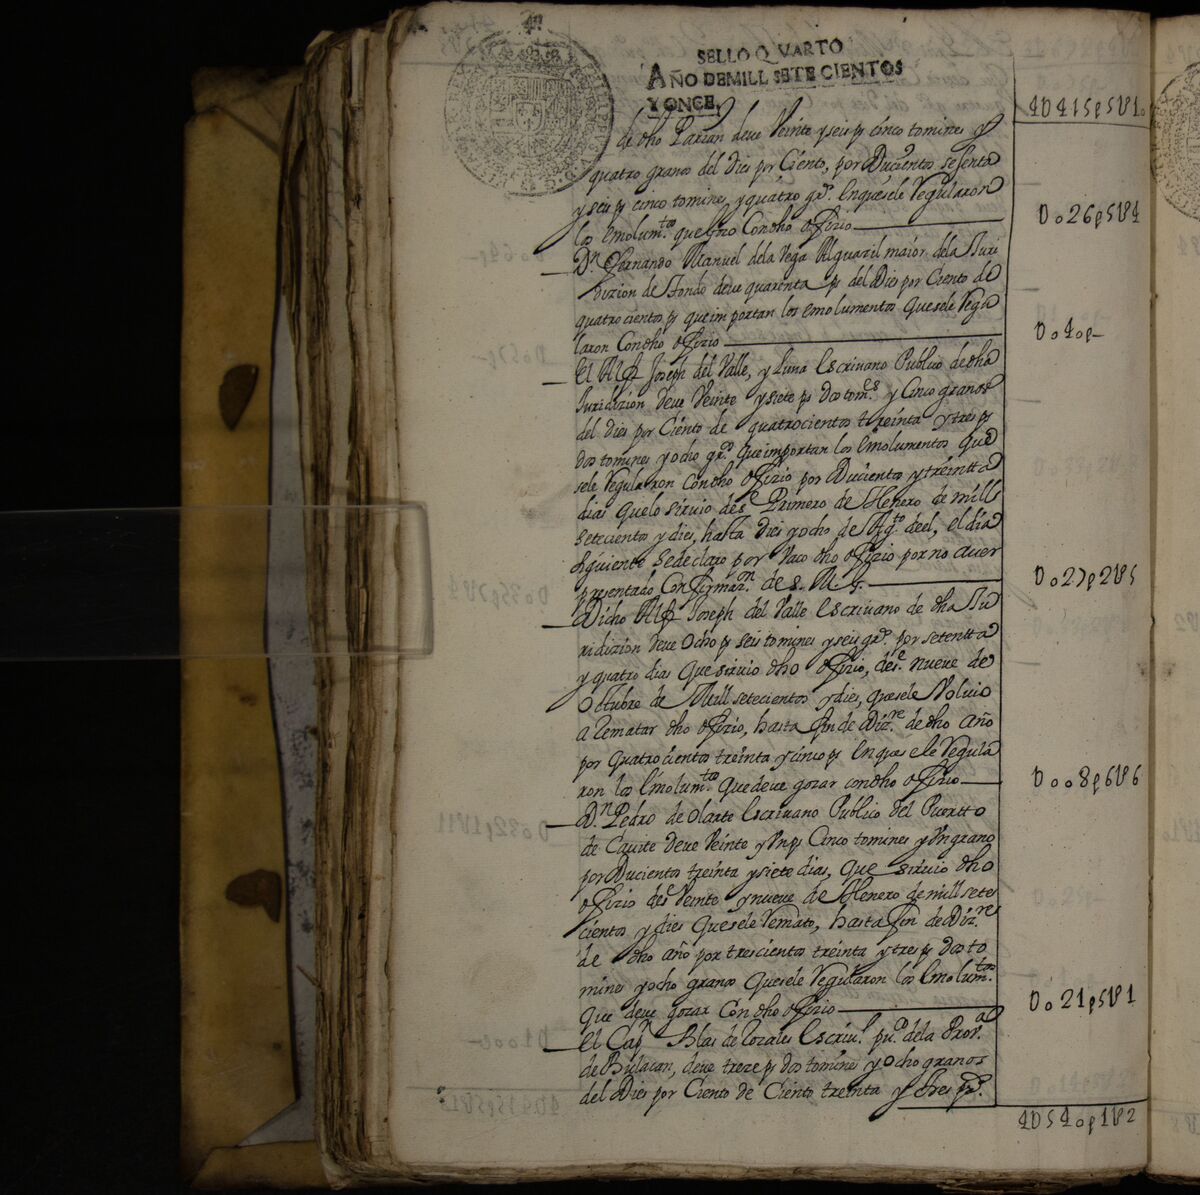 SELLO QVARTO
AÑO DE MILL SETECIENTOS
Y ONCE.
4U415p5U1
de dho Parian deve Veinte y seis ps cinco tomines y
quatro granos del Dies por Ciento, por Ducientos sesenta
y seis ps cinco tomines, y quatro grs. En que se le Regularon
los Emolumtos. que hizo Con dho ofizio
Uo26p5U4
Dn. Fernando Manuel de la Vega Alguazil maior de la Juri
dizion de Tondo deve quarenta ps del Dies por Ciento de
quatrocientos ps que importan los emolumentos que se le Regu
laron Con dho ofizio
Uo4op-
El Alfz Joseph del Valle, y Luna Escrivano Publico de dha
Juridizion deve Veinte y siete ps dos toms. y Cinco granos
del dies por Ciento de quatrocientos treinta y tres ps
dos tomines y ocho grs. que importan los Emolumentos que
se le Regularon Con dho ofizio por Ducientos y treintta
dias que lo sirvio desde Primero de Henero de mill
setecientos y dies, hasta dies y ocho de Agto. de el, el dia
siguiente se declaro por Vaco dho ofizio por no aver
presentado Confirmazn. de S. M. g.
Uo27p2U5
Dicho Alfz Joseph del Valle Escrivano de dha Ju
ridizion deve ocho ps seis tomines y seis grs. por setentta
y quatro dias que sirvio dho ofizio, desde nueve de
Octubre de Mill setecientos y dies, que se le Volvio
a Rematar dho ofizio, hasta fin de Dizre. de dho año
por quatrocientos treinta y cinco ps En que se le Regula
ron los Emolumtos. que deve gozar con dho ofizio
Uoo8p6U6
Dn. Pedro de Olarte Escrivano Publico del Puertto
de Cavite deve Veinte y Un ps Cinco tomines y Un grano
por Ducientos treinta y siete dias, que sirvio dho
ofizio desde Veinte y nueve de Henero de mill sete
cientos y dies que se le Remato, hasta fin de Dizre.
de dho año por trescientos treinta y tres ps dos to
mines y ocho granos que se le Regularon los Emolumtos.
que deve gozar Con dho ofizio
Uo21p5U1
El Capn Blas de Rozales Escrivo. puco. de la Prova.
de Bulacan, deve treze ps dos tomines y ocho granos
del Dies por Ciento de Ciento treinta y tres ps.
4U54op1U2